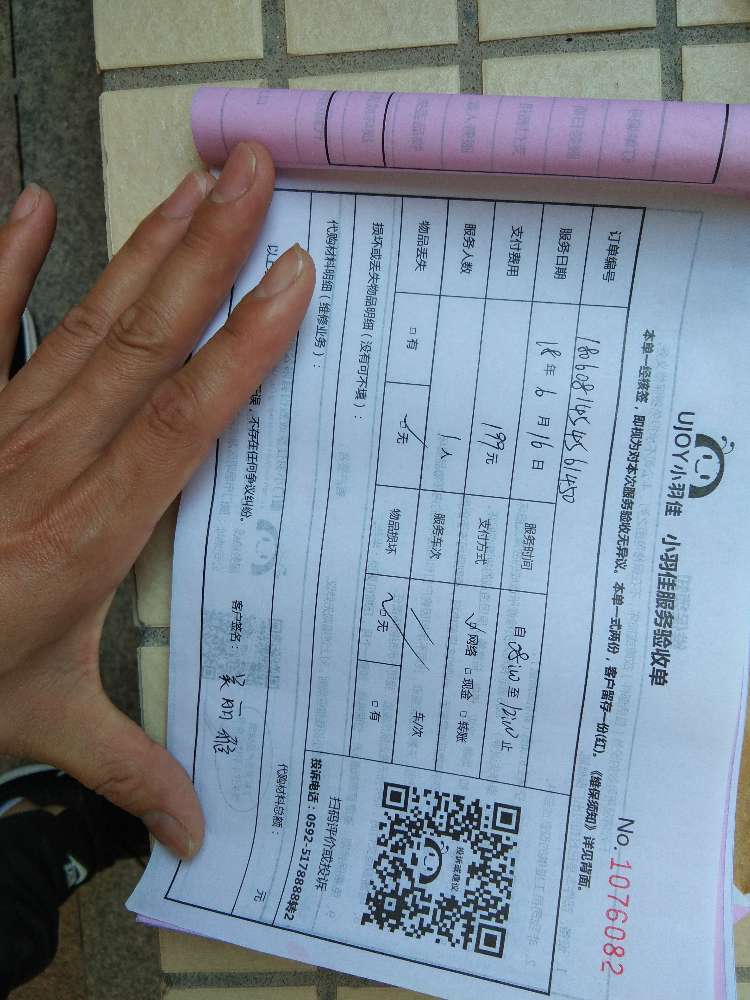 UJOY小羽佳 小羽佳服务验收单
No. 1076082
本单一经接签,即视为对本次服务验收无异议。本单一式两份,客户留存一份(红)。《维保须知》详见背面。
订单编号
服务日期 18年6月16日 服务时间 自08:00至12:00止
支付费用 199元 支付方式 ☑网络 □现金 □转账
服务人数 1人 服务车次 车/次
物品丢失 □有 ☑无 物品损坏 ☑无 □有
损坏或丢失物品明细(没有可不填):
代购材料明细(维修业务): 代购材料总额: 元
投诉或建议
扫码评价或投诉
投诉电话:0592-5178888转2
以上
误,不存在任何争议纠纷。 客户签名: